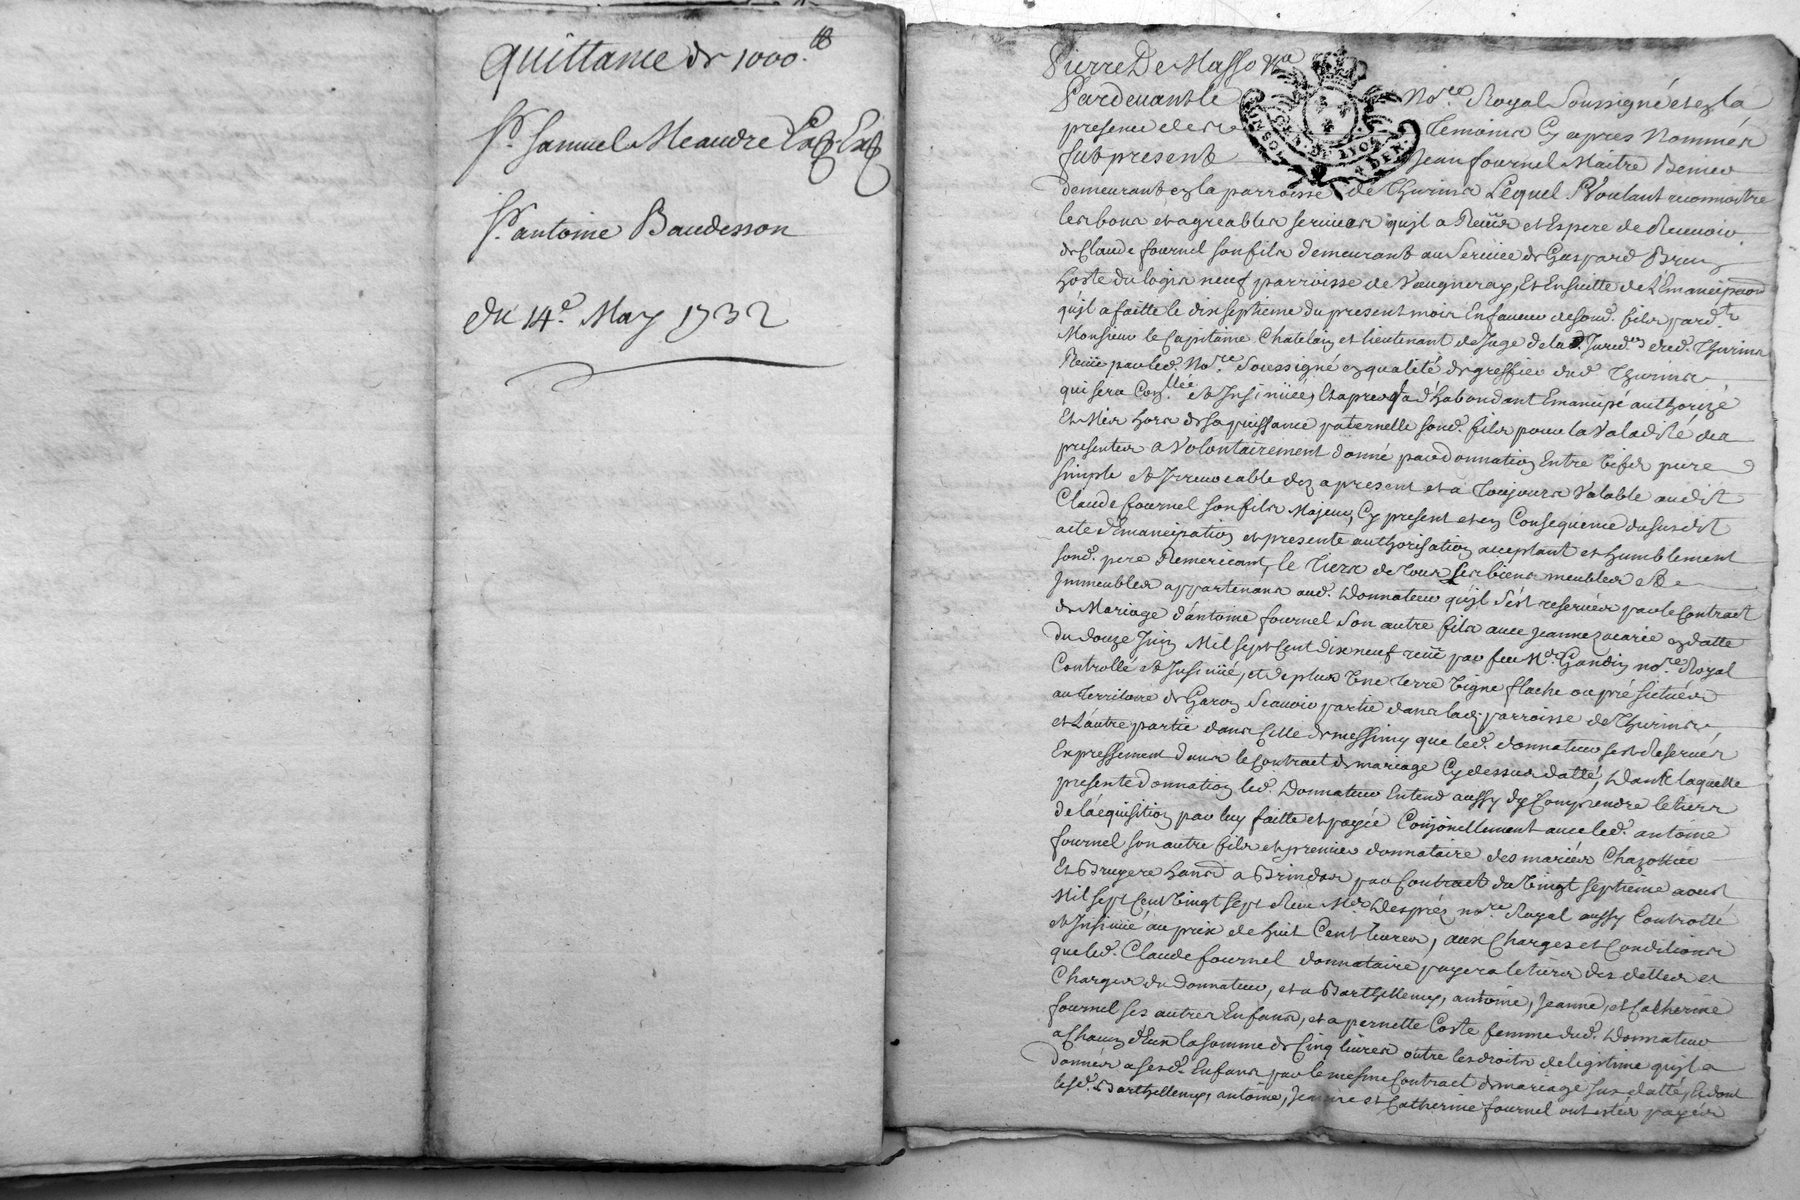 Quittance de 1000.lt
Sr. Samuel Meaudre
Sr. antoine Baudesson
du 14e. May 1732
Pierre De Masso
Pardevant le Nore. Royal Soussigné et en la
presence des Temoins Cy apres Nommés
fut present Jean fournel Maitre
demeurant en la parroisse de Thurins Lequel Voulant reconnoitre
les bons et agreables services qu'jl a Reçus et Espere de Recevoir
de Claude fournel son fils demeurant au Service de Gaspard Brun
hoste du logis neuf parroisse de Vaugneray, Et En suitte de L'Emancipaon
qu'jl a faitte le dix septieme du present mois En faveur de sond. fils pardt.
Monsieur le Capitaine Chatelain et lieutenant de Juge de la Jurid.on dud. Thurins
Reçüe par led. Nore. Soussigné en qualité de greffier dud. Thurins
qui sera Conllée et Jnsinüée, Et apres l'a d'habondant Emancipé authorizé
Et Mis hors de sa puissance paternelle sond. fils pour la Validité des
presentes a Volontairement donné par donnation Entre Vifs pure
simple et Jrrevocable des a present et a Toujours Valable audit
Claude fournel son fils Majeur, Cy present et en Consequence du susdit
acte d'Emancipation et presente authorisation acceptant et humblement
sond. pere Remerciant, le Tiers de tous ses biens meubles et
Jmmeubles appartenans aud. Donnateur qu'jl s'est reservés par le Contract
de Mariage d'antoine fournel Son autre fils avec Jeanne zacarie en datte
du douze Juin Mil sept Cent dix neuf reçu par feu Me. Gandin nore. Royal
Controllé et Jnsinüé, et de plus Une Terre Vigne flache ou pré situés
au Territoire de Garon Scavoir partie dans lad. parroisse de Thurins
et L'autre partie dans Celle de messimy que led. donnateur s'est Reservés
Expressement dans le Contract de mariage Cy dessus datté, Dans laquelle
presente donnation led. Donnateur Entend aussy dy Comprendre le tiers
de l'acquisition par luy faitte et payée Conjointement avec led. antoine
fournel son autre fils et premier donnataire des mariés
Et Bruyere a Brindas par Contract du Vingt septieme aoust
Mil sept Cent Vingt sept Reçu Me. Desprez nore. Royal aussy Controllé
et Jnsinüé au prix de huit Cent livres, aux Charges et Conditions
que led. Claude fournel donnataire payera le tiers des dettes et
Charges du donnateur, et a Barthellemy, antoine, Jeanne, et Catherine
fournel ses autres Enfans, et a pernette Coste femme dud. Donnateur
a Chacun d'Eux la somme de Cinq livres outre les droits de legitime qu'jl a
donnés a sesd. Enfans par le mesme Contract de mariage sus datté, Et dont
lesd. Barthellemy, antoine, Jeanne et Catherine fournel ont estés payés